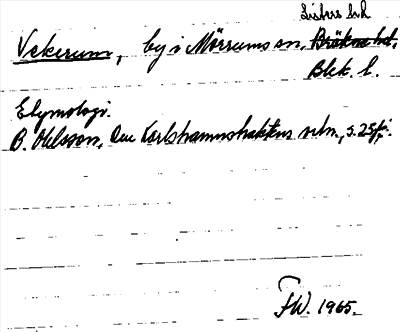 Listers hd
Vekerum, by i Mörrums sn, Bräkne hd,
Blek. l.
Etymologi.
B. Ohlsson, Den Karlshamnstraktens ortn., s. 25 f.
FW. 1965.